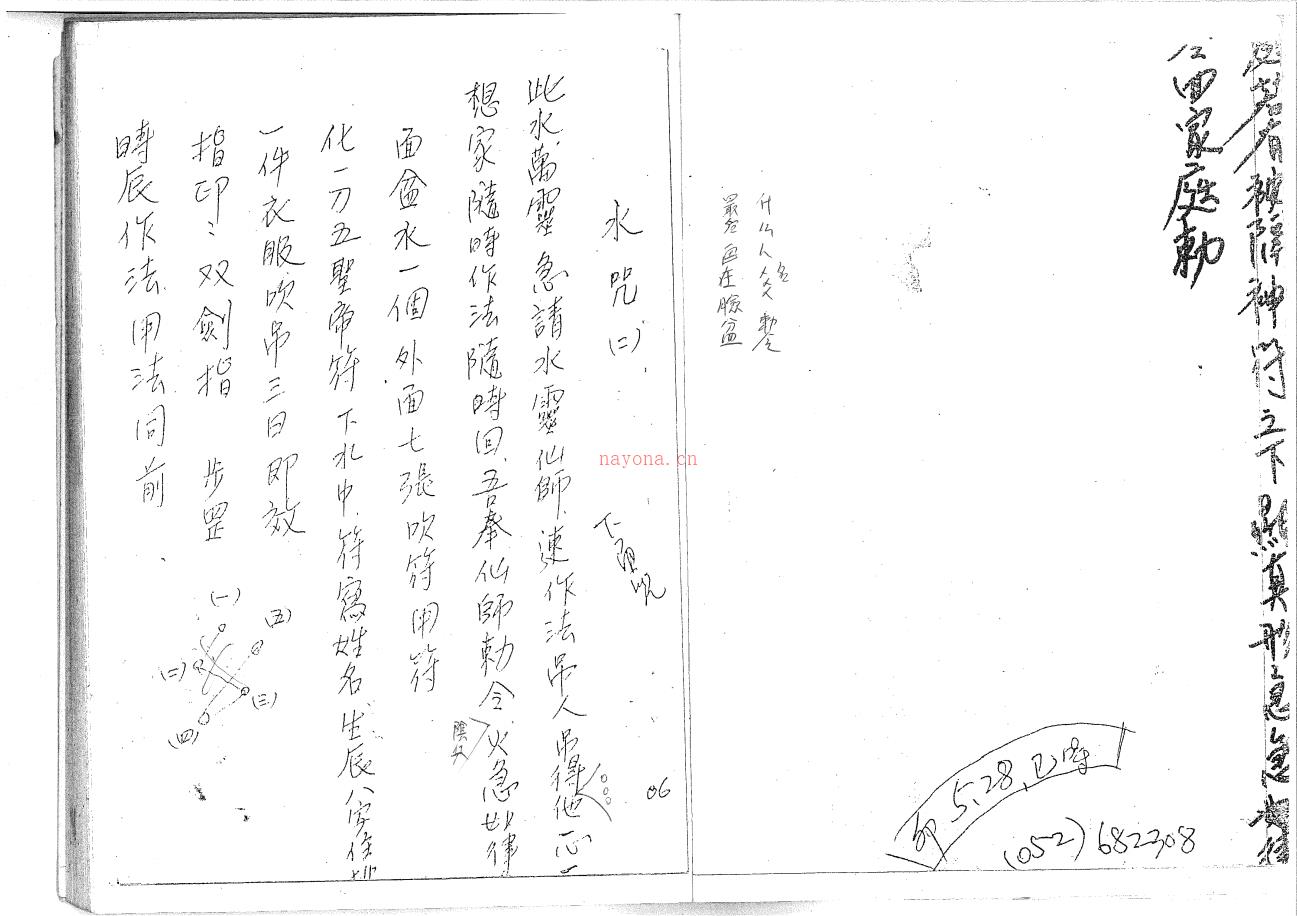 神符之下
真形急
家庭勅
什么人
最念
在臉盆
卯5,28,巳時
(052)682308
水咒(二)
此水萬靈急請水靈仙師、速作法吊人吊得他心一
想家隨時作法隨時回、吾奉仙師勅令火急如律
陰
面盆水一個外面七張吹符用符
化一刀五聖帝符下水中、符寫姓名生辰八字住址
一件衣服吹吊三日即效
指印:双劍指 步罡
時辰作法、用法同前
(一)
(五)
(二)
(三)
(四)
06
nayona.cn